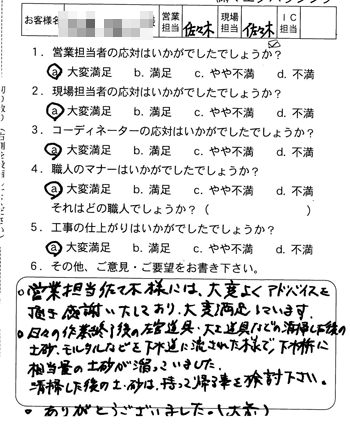 お客様名 営業担当 佐々木 現場担当 佐々木 IC担当
1. 営業担当者の応対はいかがでしたでしょうか?
a. 大変満足 b. 満足 c. やや不満 d. 不満
2. 現場担当者の応対はいかがでしたでしょうか?
a. 大変満足 b. 満足 c. やや不満 d. 不満
3. コーディネーターの応対はいかがでしたでしょうか?
a. 大変満足 b. 満足 c. やや不満 d. 不満
4. 職人のマナーはいかがでしたでしょうか?
a. 大変満足 b. 満足 c. やや不満 d. 不満
それはどの職人でしょうか?( )
5. 工事の仕上がりはいかがでしたでしょうか?
a. 大変満足 b. 満足 c. やや不満 d. 不満
6. その他、ご意見・ご要望をお書き下さい。
○営業担当佐々木様には、大変よくアドバイスを
頂き感謝いたしており、大変満足しています。
○日々の作業終了後の左官道具・大工道具などの清掃した後の
土砂、モルタルなどを下水道に流された様で、下水桝に
相当量の土砂が溜っていました。
清掃した後の土・砂は、持って帰る事を検討下さい。
○ ありがとうございました。